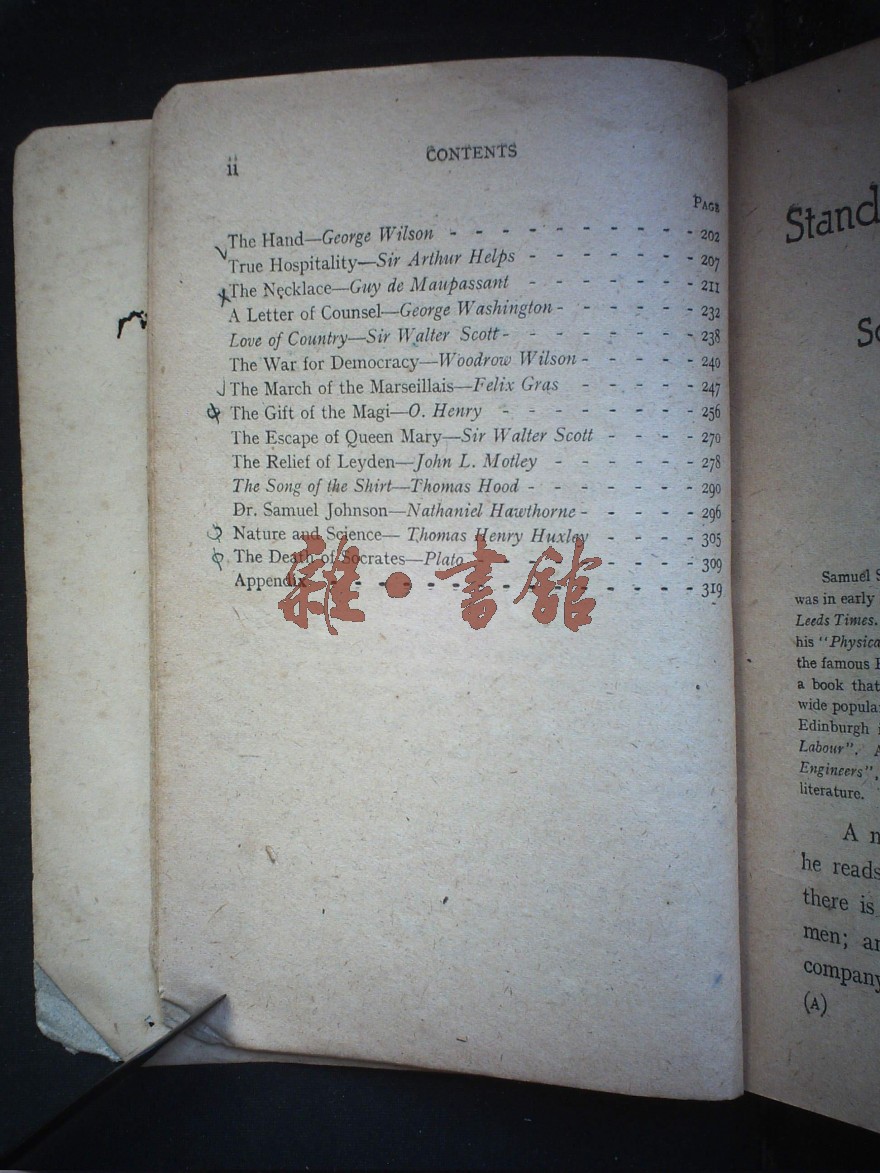 ii
CONTENTS
PAGE
The Hand—George Wilson - - - - - - - - - - 202
True Hospitality—Sir Arthur Helps - - - - - - - 207
The Necklace—Guy de Maupassant - - - - - - - 211
A Letter of Counsel—George Washington - - - - - - 232
Love of Country—Sir Walter Scott - - - - - - - - 238
The War for Democracy—Woodrow Wilson - - - - - 240
The March of the Marseillais—Felix Gras - - - - - 247
The Gift of the Magi—O. Henry - - - - - - - - 256
The Escape of Queen Mary—Sir Walter Scott - - - - 270
The Relief of Leyden—John L. Motley - - - - - - 278
The Song of the Shirt—Thomas Hood - - - - - - - 290
Dr. Samuel Johnson—Nathaniel Hawthorne - - - - - 296
Nature and Science— Thomas Henry Huxley - - - - 305
The Death of Socrates—Plato - - - - - - - - - 309
Appendix - - - - - - - - - - - - - - 319
雜·書館
Stand
Samuel S
was in early
Leeds Times.
his "Physica
the famous
a book that
wide popula
Edinburgh
Labour".
Engineers",
literature.
A
he reads
there is
men; an
company
(A)